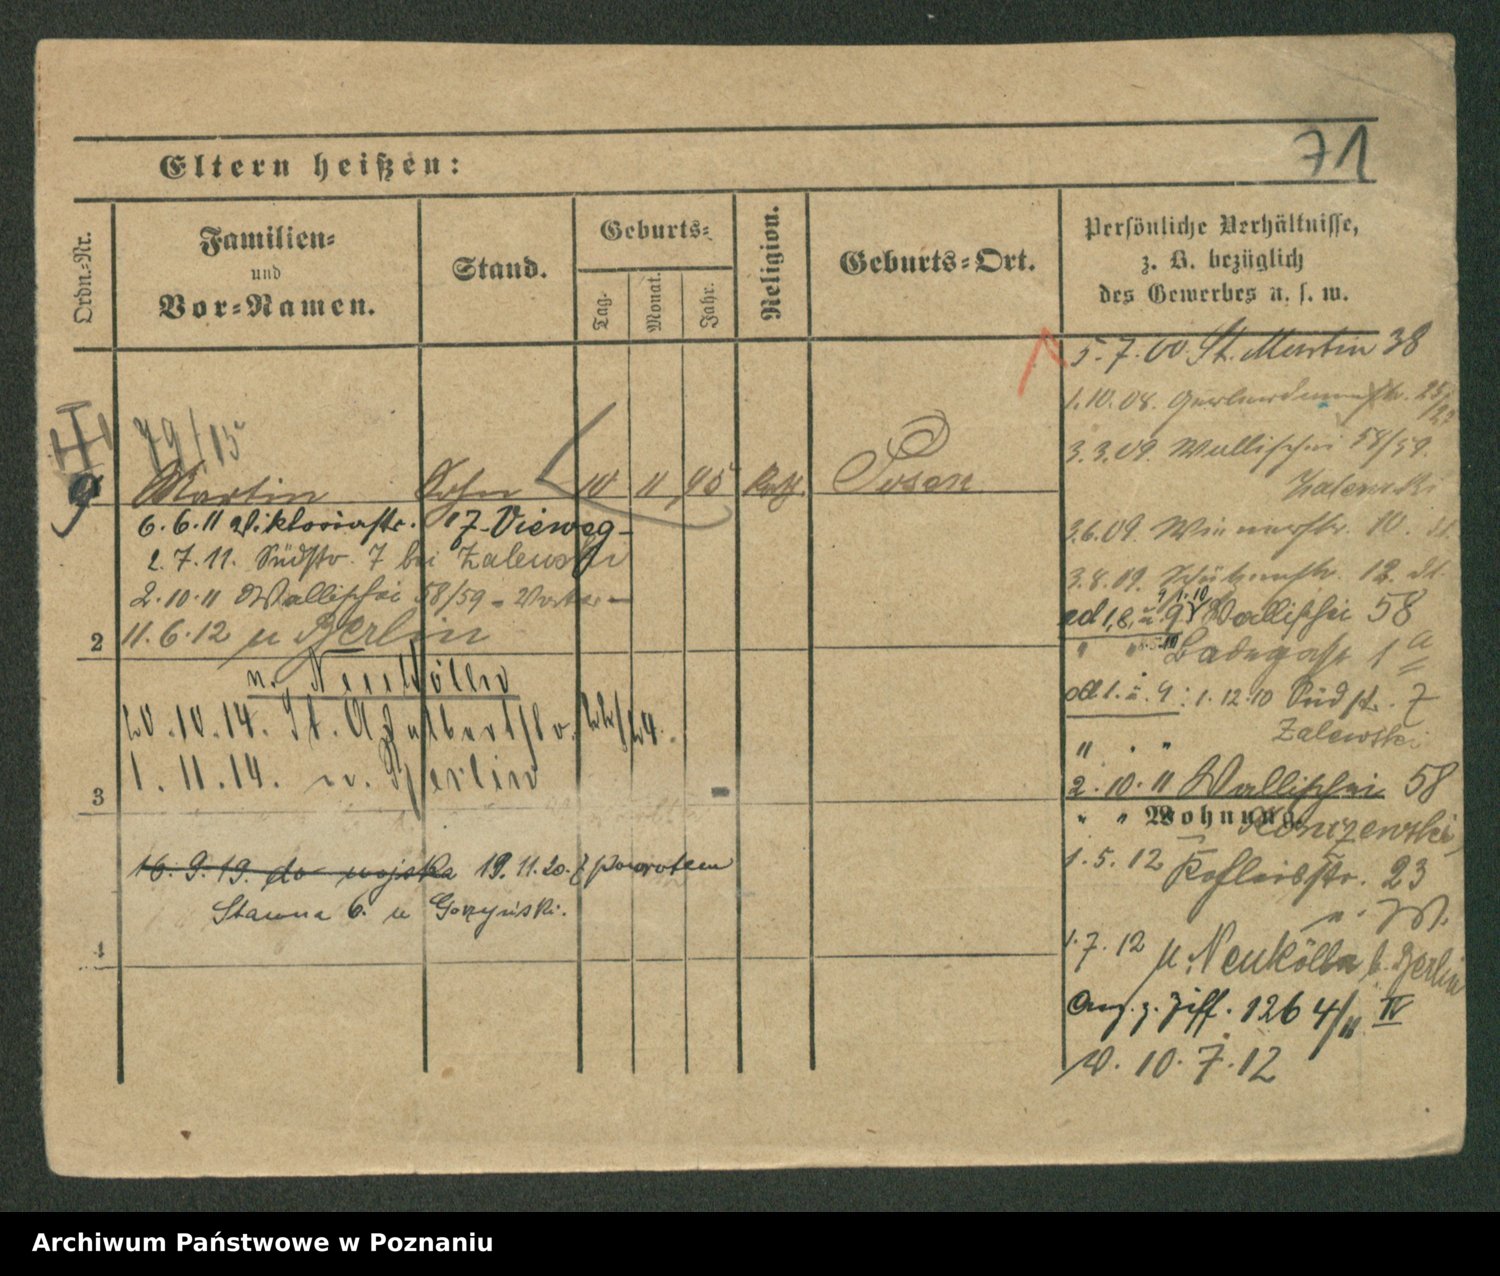 71
Eltern heißen:
Ordn.-Nr.
Familien-
und
Vor-Namen.
Stand.
Geburts-
Tag.
Monat.
Jahr.
Religion.
Geburts-Ort.
Persönliche Verhältnisse,
z. B. bezüglich
des Gewerbes u. s. w.
79/15
9 Martin Sohn 10 11 95 Kath. Posen
6.6.11 Viktoriastr. 17 - Vieweg -
2.7.11. Südstr. 7 bei Zalewski
2.10.11 Wallischei 58/59 -
2 11.6.12 n Berlin
n. Neukölln
20.10.14. St. Adalbertstr. 22/24.
1.11.14. n. Berlin
3
16.9.19. do wojska 19.11.20. z powrotem
Stawna 6. u Gorzyński.
4
5.7.00. St. Martin 38
1.10.08.
3.3.09. Wallischei 58/59.
Zalewski
3.6.09. Wienerstr. 10.
3.8.09. Schützenstr. 12.
1.10
ad 1, 8, u. 9 Wallischei 58
" " Badegasse 1a
ad 1. u. 9: 1.12.10 Südstr. 7
Zalewski
" . "
2.10.11 Wallischei 58
" " Wohnung.
1.5.12 23
1.7.12 n. Neukölln b. Berlin
Ang. z. Ziff. 1264/12 IV
v. 10.7.12
Archiwum Państwowe w Poznaniu